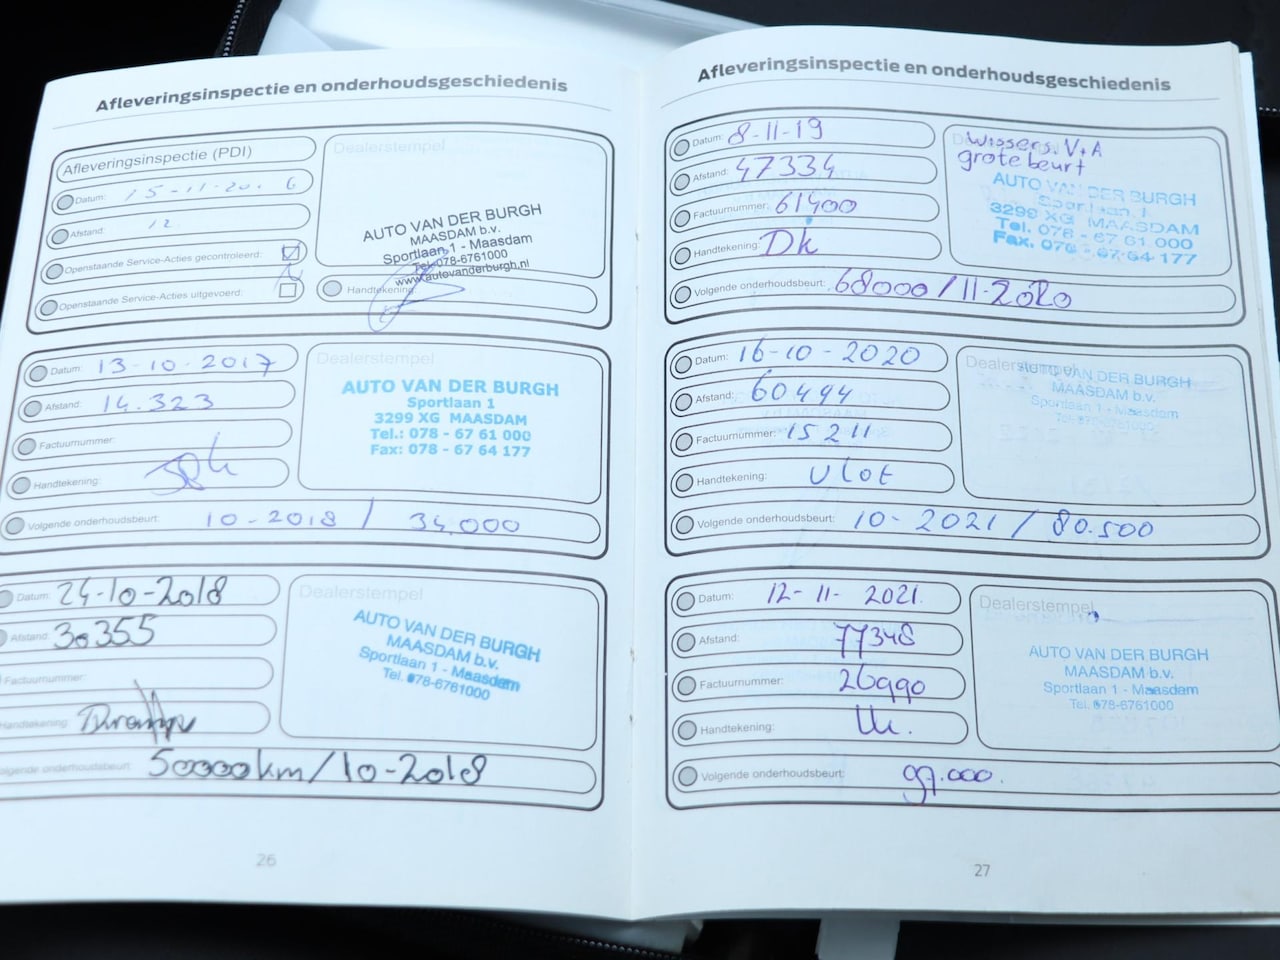 Afleveringsinspectie en onderhoudsgeschiedenis
Afleveringsinspectie (PDI)
Datum: 15-11-2016
Afstand: 12
Openstaande Service-Acties gecontroleerd:
Openstaande Service-Acties uitgevoerd:
Dealerstempel
AUTO VAN DER BURGH
MAASDAM b.v.
Sportlaan 1 - Maasdam
Tel. 078-6761000
www.autovanderburgh.nl
Handtekening:
Datum: 13-10-2017
Afstand: 14.323
Factuurnummer:
Handtekening:
Volgende onderhoudsbeurt: 10-2018 / 34.000
Dealerstempel
AUTO VAN DER BURGH
Sportlaan 1
3299 XG MAASDAM
Tel.: 078 - 67 61 000
Fax: 078 - 67 64 177
Datum: 24-10-2018
Afstand: 30355
Factuurnummer:
Handtekening:
Volgende onderhoudsbeurt: 50000km/10-2018
Dealerstempel
AUTO VAN DER BURGH
MAASDAM b.v.
Sportlaan 1 - Maasdam
Tel. 078-6761000
26
Afleveringsinspectie en onderhoudsgeschiedenis
Datum: 8-11-19
Afstand: 47334
Factuurnummer: 61400
Handtekening: Dk
Volgende onderhoudsbeurt: 68000/11-2020
Wissers V+A
grote beurt
AUTO VAN DER BURGH
Sportlaan 1
3299 XG MAASDAM
Tel. 078 - 67 61 000
Fax. 078 - 67 64 177
Datum: 16-10-2020
Afstand: 60494
Factuurnummer: 15211
Handtekening: Vlot
Volgende onderhoudsbeurt: 10-2021 / 80.500
Dealerstempel
AUTO VAN DER BURGH
MAASDAM b.v.
Sportlaan 1 - Maasdam
Tel. 078-6761000
Datum: 12-11-2021.
Afstand: 77348
Factuurnummer: 26990
Handtekening:
Volgende onderhoudsbeurt: 97.000.
Dealerstempel
AUTO VAN DER BURGH
MAASDAM b.v.
Sportlaan 1 - Maasdam
Tel. 078-6761000
27